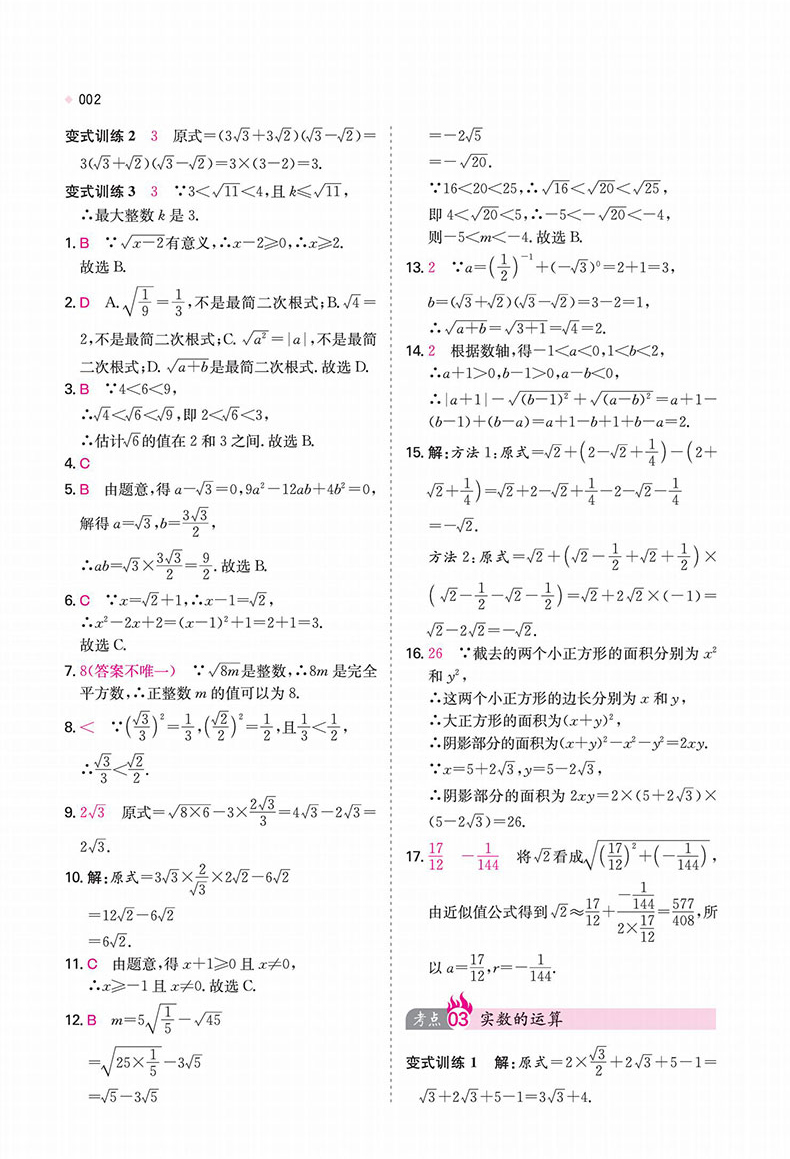 002
变式训练2 3 原式=(3√3+3√2)(√3-√2)=
3(√3+√2)(√3-√2)=3×(3-2)=3.
变式训练3 3 ∵3<√11<4,且k⩽√11,
∴最大整数k是3.
1. B ∵√(x-2)有意义,∴x-2⩾0,∴x⩾2.
故选B.
2. D A. √(1/9)=1/3,不是最简二次根式;B. √4=
2,不是最简二次根式;C. √(a²)=|a|,不是最简
二次根式;D. √(a+b)是最简二次根式.故选D.
3. B ∵4<6<9,
∴√4<√6<√9,即2<√6<3,
∴估计√6的值在2和3之间.故选B.
4. C
5. B 由题意,得a-√3=0,9a²-12ab+4b²=0,
解得a=√3,b=3√3/2,
∴ab=√3×3√3/2=9/2.故选B.
6. C ∵x=√2+1,∴x-1=√2,
∴x²-2x+2=(x-1)²+1=2+1=3.
故选C.
7. 8(答案不唯一) ∵√(8m)是整数,∴8m是完全
平方数,∴正整数m的值可以为8.
8. < ∵(√3/3)²=1/3,(√2/2)²=1/2,且1/3<1/2,
∴√3/3<√2/2.
9. 2√3 原式=√(8×6)-3×2√3/3=4√3-2√3=
2√3.
10. 解:原式=3√3×2/√3×2√2-6√2
=12√2-6√2
=6√2.
11. C 由题意,得x+1⩾0且x≠0,
∴x⩾-1且x≠0.故选C.
12. B m=5√(1/5)-√45
=√(25×1/5)-3√5
=√5-3√5
=-2√5
=-√20.
∵16<20<25,∴√16<√20<√25,
即4<√20<5,∴-5<-√20<-4,
则-5<m<-4.故选B.
13. 2 ∵a=(1/2)⁻¹+(-√3)⁰=2+1=3,
b=(√3+√2)(√3-√2)=3-2=1,
∴√(a+b)=√(3+1)=√4=2.
14. 2 根据数轴,得-1<a<0,1<b<2,
∴a+1>0,b-1>0,a-b<0,
∴|a+1|-√((b-1)²)+√((a-b)²)=a+1-
(b-1)+(b-a)=a+1-b+1+b-a=2.
15. 解:方法1:原式=√2+(2-√2+1/4)-(2+
√2+1/4)=√2+2-√2+1/4-2-√2-1/4
=-√2.
方法2:原式=√2+(√2-1/2+√2+1/2)×
(√2-1/2-√2-1/2)=√2+2√2×(-1)=
√2-2√2=-√2.
16. 26 ∵截去的两个小正方形的面积分别为x²
和y²,
∴这两个小正方形的边长分别为x和y,
∴大正方形的面积为(x+y)²,
∴阴影部分的面积为(x+y)²-x²-y²=2xy.
∵x=5+2√3,y=5-2√3,
∴阴影部分的面积为2xy=2×(5+2√3)×
(5-2√3)=26.
17. 17/12 -1/144 将√2看成√((17/12)²+(-1/144)),
由近似值公式得到√2≈17/12+(-1/144)/(2×17/12)=577/408,所
以a=17/12,r=-1/144.
考点 03 实数的运算
变式训练1 解:原式=2×√3/2+2√3+5-1=
√3+2√3+5-1=3√3+4.